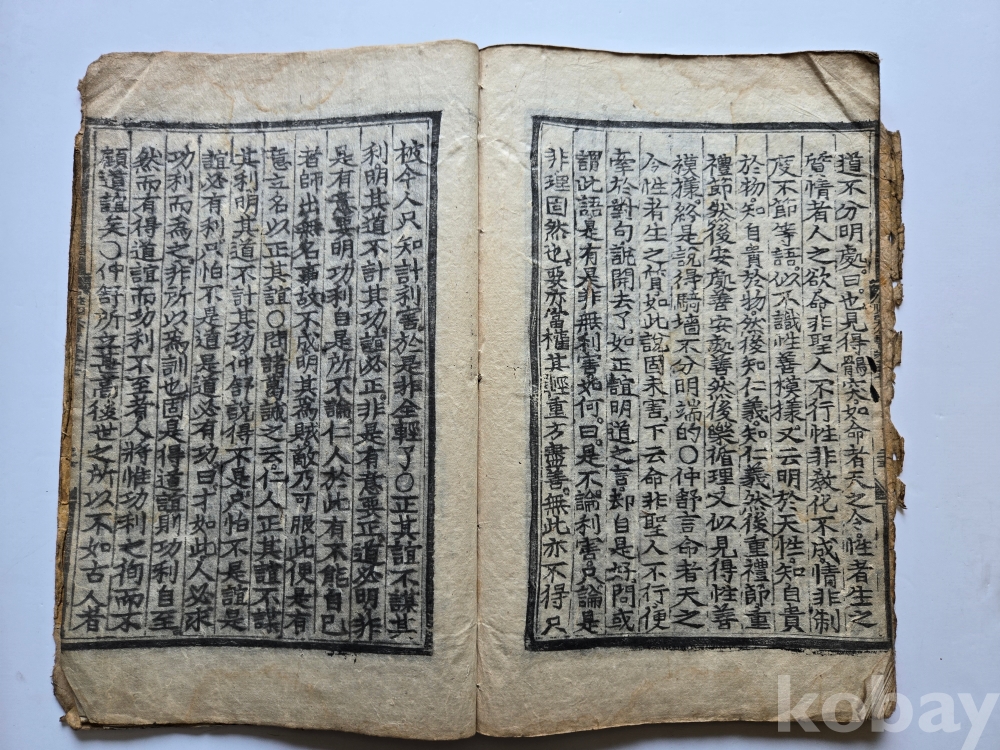 道不分明處曰也見得鶻突如命者天之令性者生之
質情者人之欲命非聖人不行性非敎化不成情非制
度不節等語似不識性善模樣又云明於天性知自貴
於物知自貴於物然後知仁義知仁義然後重禮節重
禮節然後安處善安處善然後樂循理又似見得性善
模樣終是說得騎墻不分明端的○仲舒言命者天之
令性者生之質如此說固未害下云命非聖人不行便
牽於對句說開去了如正誼明道之言却自是好問或
謂此語是有是非無利害如何曰是不論利害只論是
非理固然也要亦當權其輕重方盡善無此亦不得只
被今人只知計利害於是非全輕了○正其誼不謀其
利明其道不計其功誼必正非是有意要正道必明非
是有意要明功利自是所不論仁人於此有不能自已
者師出無名事故不成明其爲賊敵乃可服此便是有
意立名以正其誼○問諸葛誠之云仁人正其誼不謀
其利明其道不計其功仲舒說得不是只怕不是誼是
誼必有利只怕不是道是道必有功曰才如此人必求
功利而爲之非所以爲訓也固是得道誼則功利自至
然而有得道誼而功利不至者人將惟功利之徇而不
顧道誼矣○仲舒所立甚高後世之所以不如古人者
kobay